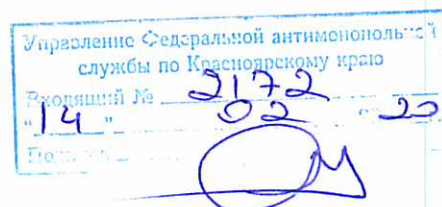 Управление Федеральной антимонопольной
службы по Красноярскому краю
Входящий № 2172
"14" 02 20